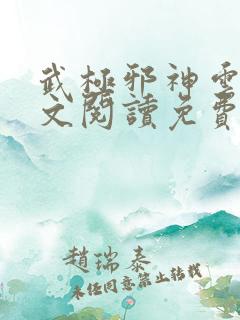 武極邪神
文閱讀免費
趙瑞泰
未任同意禁止轉載